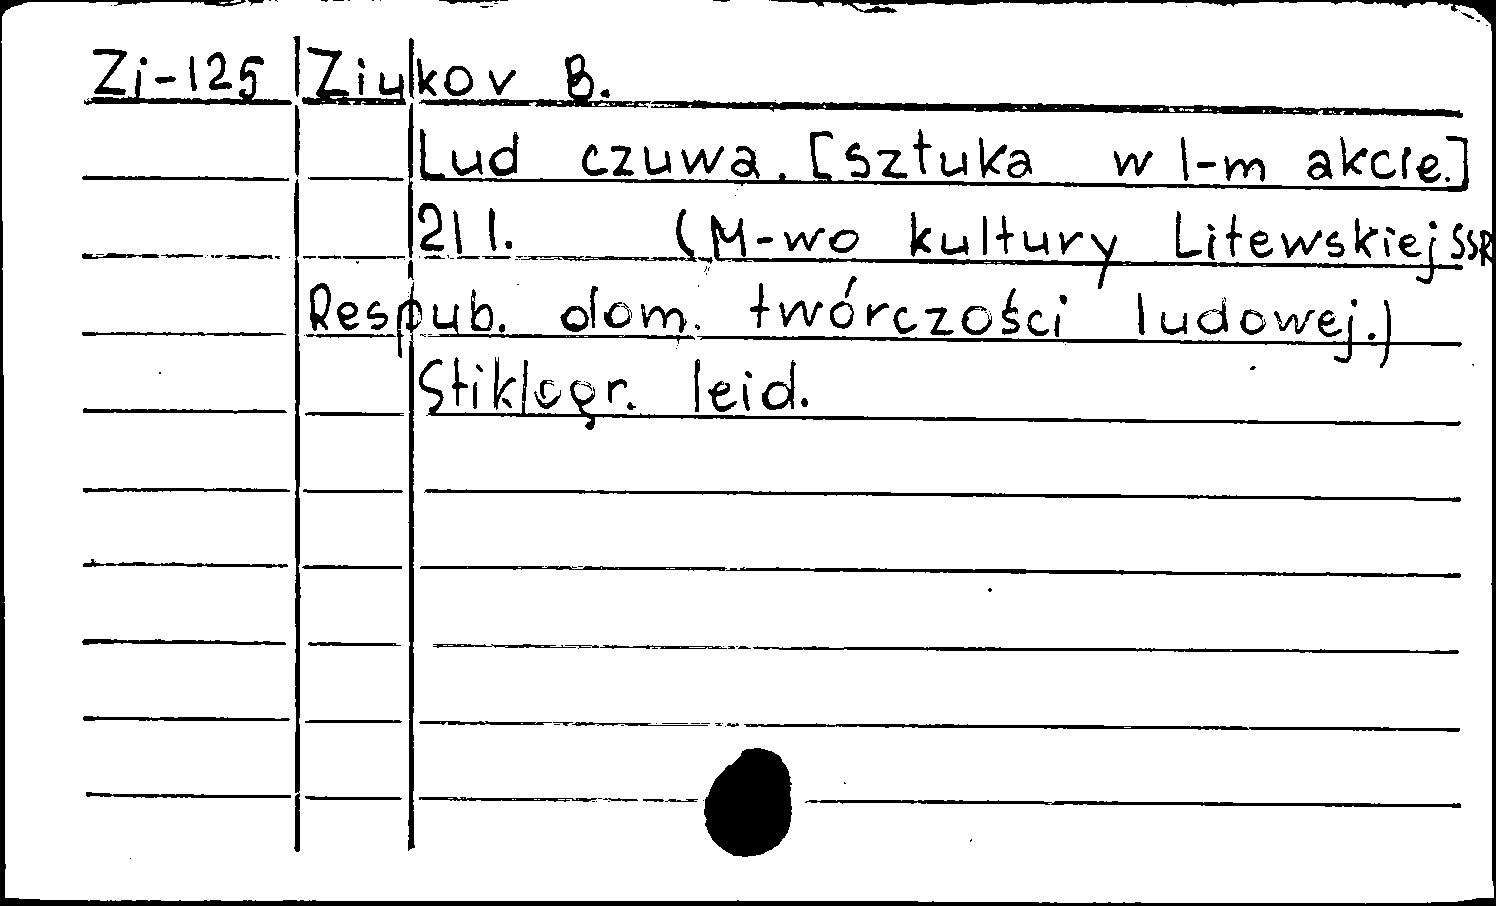 Zi-125 Ziukov B.
Lud czuwa. [sztuka w 1-m akcie.]
21 l. (M-wo kultury Litewskiej SSR
Respub. dom. twórczości ludowej.)
Stiklogr. leid.